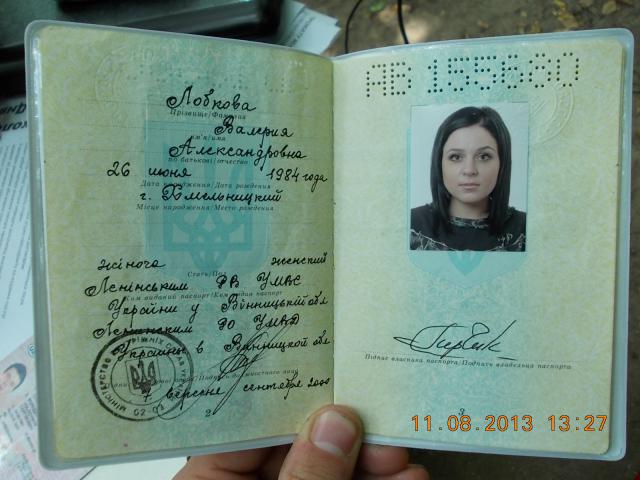 Лобкова
Прізвище/Фамилия
Валерия
ім'я/имя
Александровна
по батькові/отчество
26 июня 1984 года
Дата народження/Дата рождения
г. Хмельницкий
Місце народження/Место рождения
жіноча женский
Стать/Пол
Ленінським РВ УМВС
Ким виданий паспорт/Кем выдан паспорт
України у Вінницькій обл
Ленинским РО УМВД
Украины в Винницкой обл
7 вересня сентября 2000
2
АВ 155680
Підпис власника паспорта/Подпись владельца паспорта
3
11.08.2013 13:27